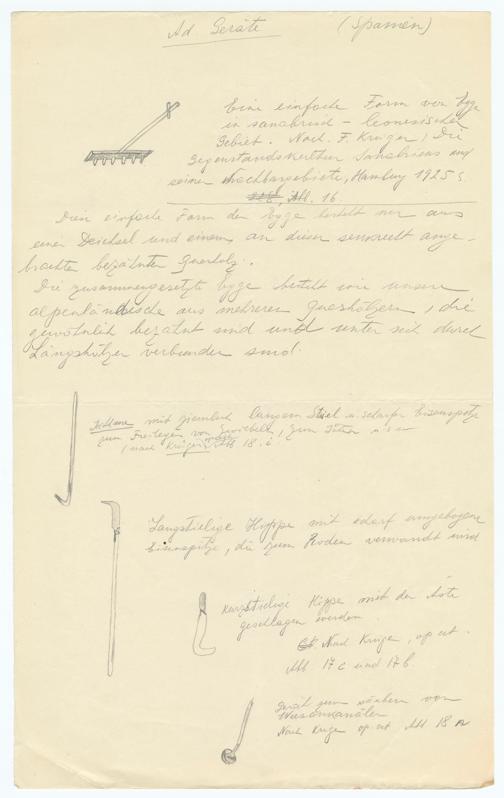 Ad. Geräte (Spanien)
Eine einfache Form von Egge
in sanabrisch - leonesischen
Gebiet. Nach. F. Krüger, Die
Gegenstandskultur Sanabrias und
seiner Nachbargebiete, Hamburg 1925
Abb. 16.
einfache Form der Egge besteht nur aus
einer Deichsel und einem an dieser senkrecht ange-
brachten bezahnten Querholz.
Die zusammengesetzte Egge besteht wie unsere
alpenländische aus mehreren Querhölzern, die
gewöhnlich bezahnt sind und unter sich durch
Längshölzer verbunden sind.
mit ziemlich langem Stiel u. scharfer Eisenspitze
zum Freilegen von Zwiebeln, zum Jäten u s w
(nach Krüger Abb 18. i
Langstielige Hippe mit scharf umgebogene
Eisenspitze, die zum Roden verwandt wird
Kurzstielige Hippe mit der Äste
geschlagen werden
Nach Krüger, op. cit.
Abb 17 c und 17 b.
Gerät zum säubern von
Wasserkanälen
Nach Krüger op. cit. Abb 18